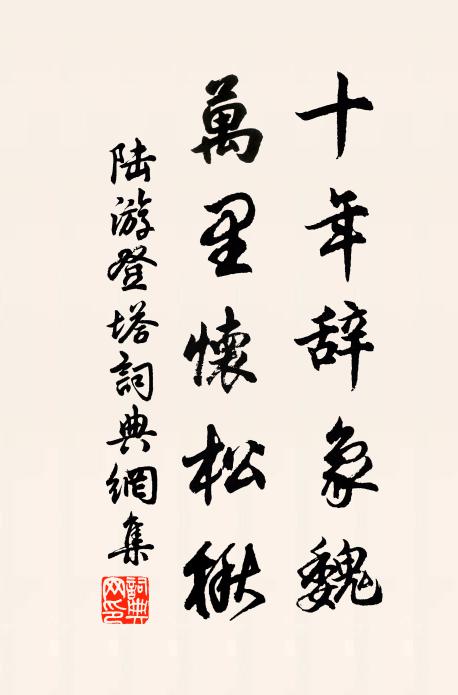 十年辞象魏
萬里懷松楸
陆游登塔詞典網集
詞典網印